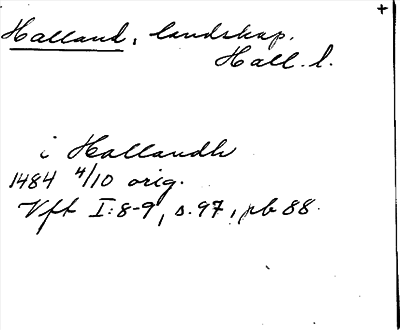 +
Halland, landskap.
Hall. l.
i Hallandh
1484 4/10 orig.
Vft I:8-9, s.97, pb 88.